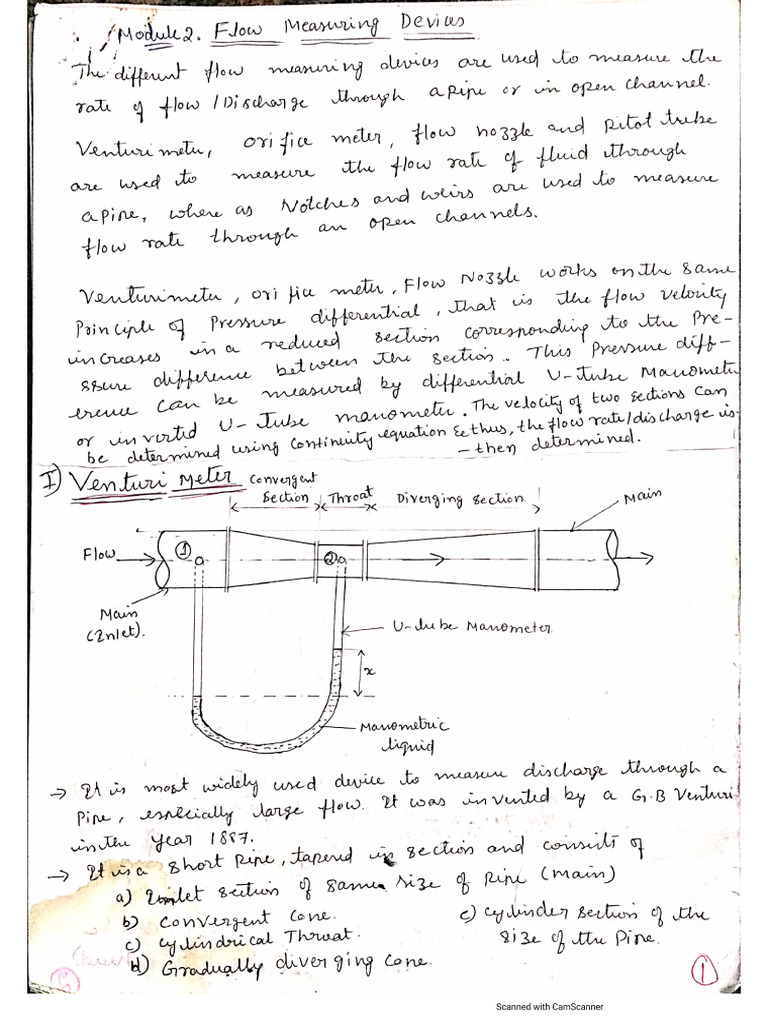 Module 2. Flow Measuring Devices
The different flow measuring devices are used to measure the
rate of flow / Discharge through a pipe or in open channel.
Venturimeter, orifice meter, flow nozzle and pitot tube
are used to measure the flow rate of fluid through
a pipe, where as Notches and weirs are used to measure
flow rate through an open channels.
Venturimeter, orifice meter, Flow Nozzle works on the same
Principle of Pressure differential, that is the flow velocity
increases in a reduced section corresponding to the Pre-
ssure difference between the section. This Pressure diff-
erence can be measured by differential U-tube Manometer
or inverted U-tube manometer. The velocity of two sections can
be determined using continuity equation & thus, the flow rate/discharge is
- then determined.
I) Venturi Meter
Convergent
Section
Throat
Diverging Section
Main
Flow
①
②
Main
(Inlet).
U-tube Manometer
x
Manometric
liquid
→ It is most widely used device to measure discharge through a
Pipe, especially large flow. It was invented by a G.B Venturi
in the year 1887.
→ It is a short pipe, tapered in section and consits of
a) Inlet section of same size of pipe (main)
b) Convergent Cone.
c) Cylindrical Throat.
d) Gradually diverging cone.
e) cylinder section of the
size of the Pipe.
1
Scanned with CamScanner